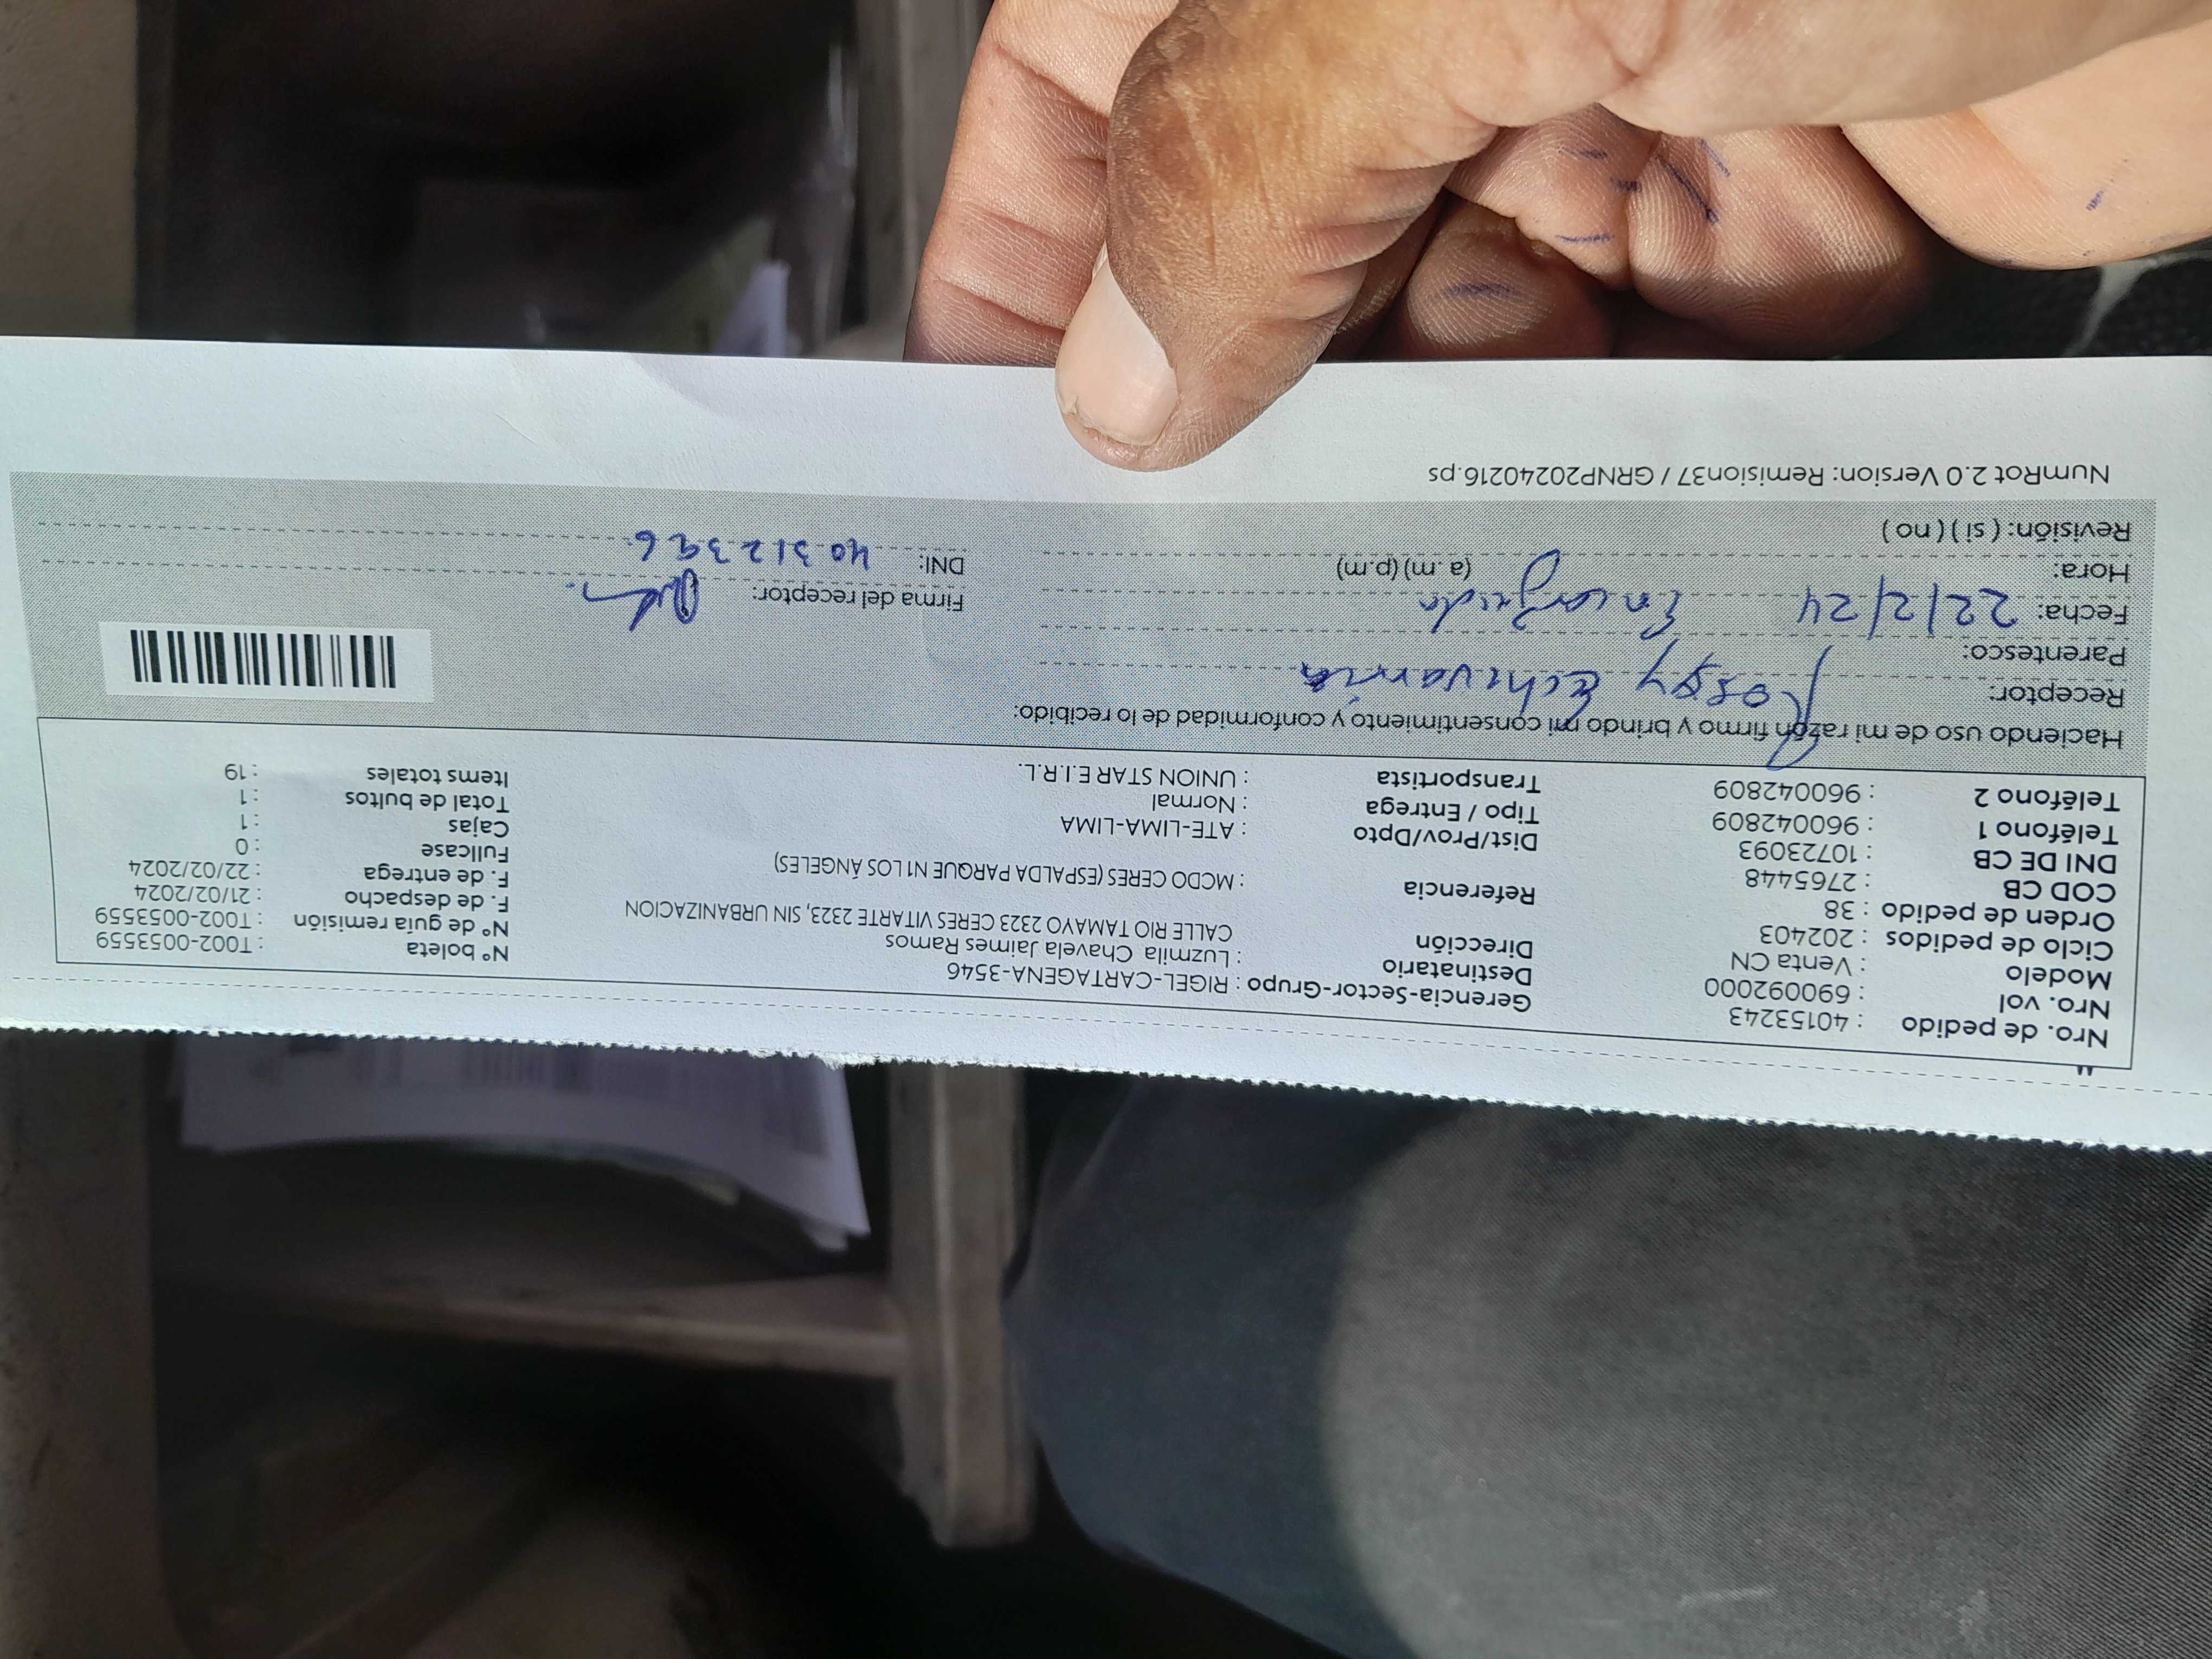 Nro. de pedido : 40153243
Nro. vol : 690092000
Modelo : Venta CN
Ciclo de pedidos : 202403
Orden de pedido : 38
COD CB : 2765448
DNI DE CB : 10723093
Teléfono 1 : 960042809
Teléfono 2 : 960042809
Gerencia-Sector-Grupo : RIGEL-CARTAGENA-3546
Destinatario : Luzmila Chavela Jaimes Ramos
Dirección CALLE RIO TAMAYO 2323 CERES VITARTE 2323, SIN URBANIZACION
Referencia : MCDO CERES (ESPALDA PARQUE N1 LOS ÁNGELES)
Dist/Prov/Dpto : ATE-LIMA-LIMA
Tipo / Entrega : Normal
Transportista : UNION STAR E.I.R.L.
N° boleta : T002-0053559
N° de guía remisión : T002-0053559
F. de despacho : 21/02/2024
F. de entrega : 22/02/2024
Fullcase : 0
Cajas : 1
Total de bultos : 1
Items totales : 19
Haciendo uso de mi razón firmo y brindo mi consentimiento y conformidad de lo recibido:
Receptor: Echevarria
Parentesco:
Fecha: 22/2/24 Encargada
Hora: (a.m) (p.m)
Revisión: ( si ) ( no )
Firma del receptor:
DNI: 40312396
NumRot 2.0 Version: Remision37 / GRNP20240216.ps